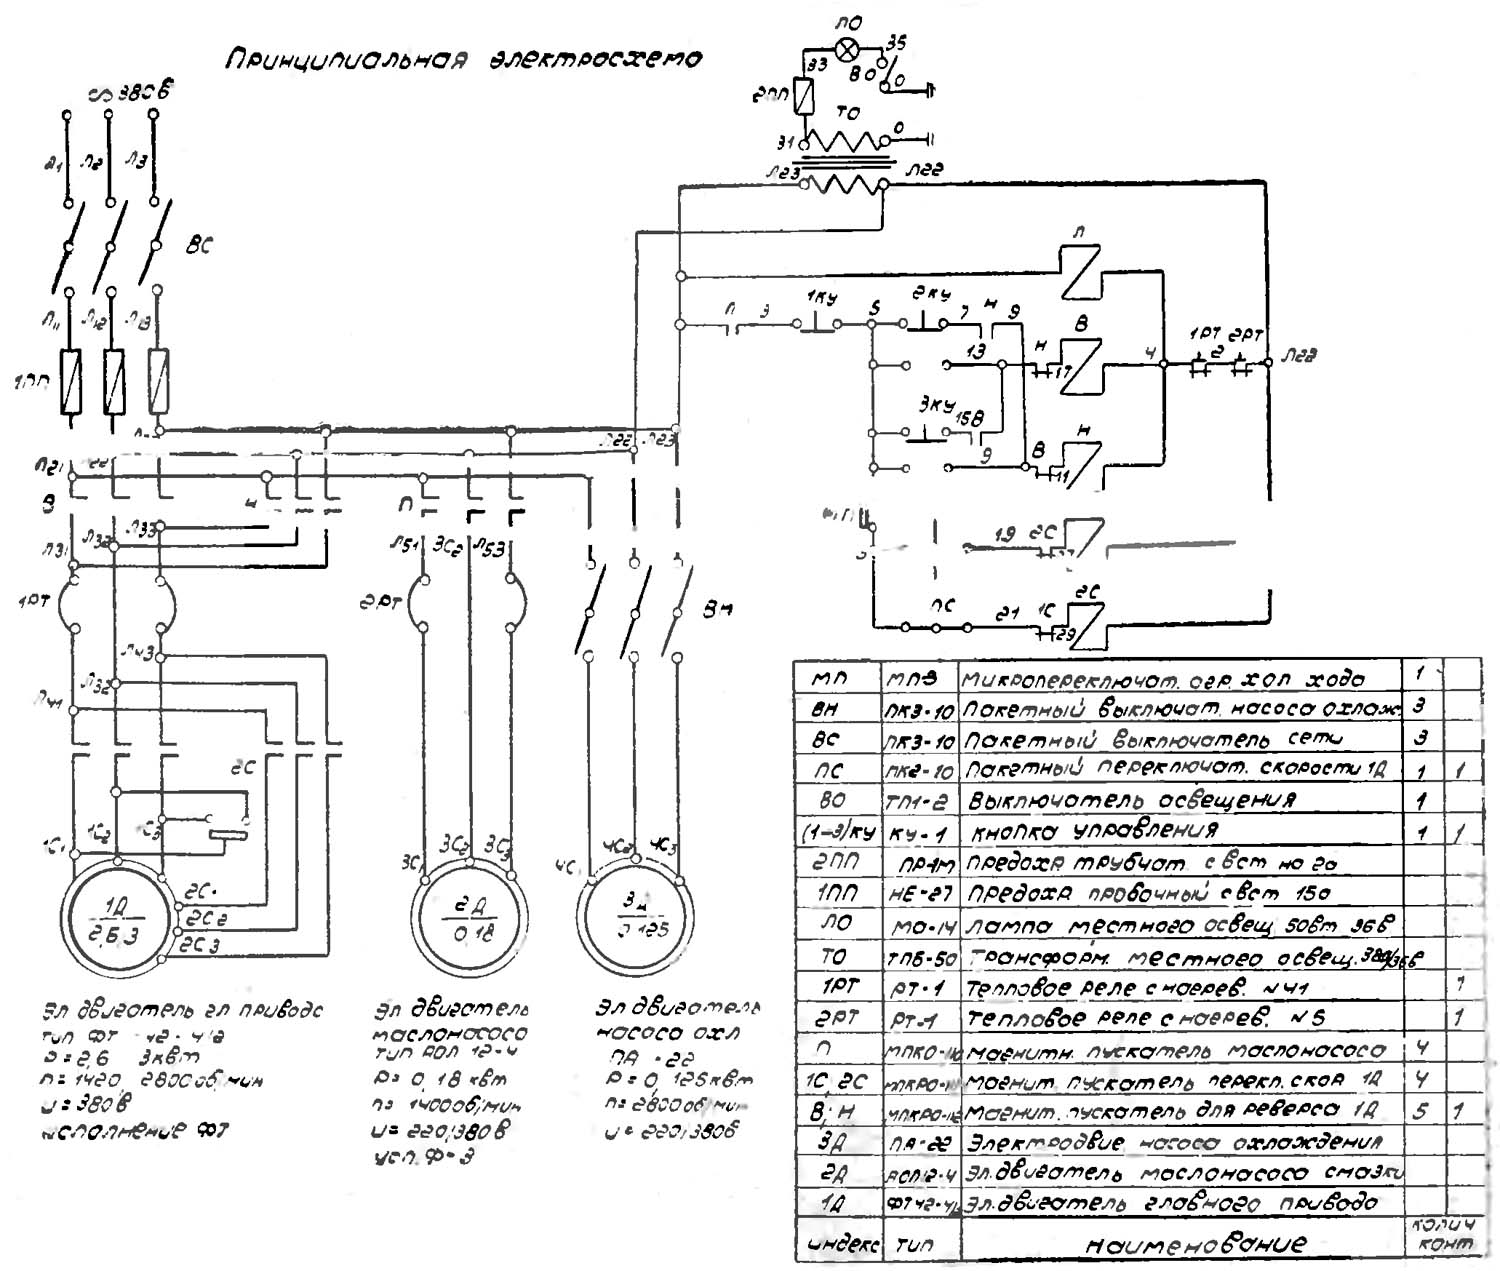 Принципиальная электросхема
380в
Л2
Л3
ВС
Л11
Л12
Л13
1ПП
Л21
В
Н
П
Л22
Л23
Л31
Л32
Л33
Л51
3С2
Л53
1РТ
2РТ
ВН
Л43
Л32
Л41
2С
1С1
1С2
1С3
2С2
2С3
3С1
3С2
3С3
4С1
4С2
4С3
1Д
2,6,3
2Д
0,18
3Д
0,125
ЛО
35
33
ВО
О
2ПП
ТО
О
31
Л23
Л22
Л
П
3
1КУ
5
2КУ
7
Н
9
В
13
Н
17
4
1РТ
2
2РТ
3КУ
15
В
9
В
11
Н
19
2С
ПС
21
1С
29
2С
Эл двигатель гл привода
тип ФТ 42-4/2
Р=2,6 3квт
n=1420, 2800об/мин
U=380в
исполнение ФТ
Эл двигатель
маслонасоса
тип АОЛ 12-4
Р=0,18 квт
n=1400об/мин
U=220/380в
исп. Ф-3
Эл двигатель
насоса охл
ПА-22
Р=0,125квт
n=2800об/мин
U=220/380в
МП МП-3 Микропереключат. огр. хол хода 1
ВН ПК3-10 Пакетный выключат. насоса охлаж. 3
ВС ПК3-10 Пакетный выключатель сети 3
ПС ПК2-10 Пакетный переключат. скорости 1Д 1 1
ВО ТП1-2 Выключатель освещения 1
(1-3)КУ КУ-1 Кнопка управления 1 1
2ПП ПР-1М Предохр трубчат. с вст на 2а
1ПП НЕ-27 Предохр пробочный с вст 15а
ЛО МО-14 Лампа местного освещ 50вт 36в
ТО ТПБ-50 Трансформ. местного освещ. 380/36в
1РТ РТ-1 Тепловое реле с нагрев. №41 1
2РТ РТ-1 Тепловое реле с нагрев. №5 1
П Магнитн. пускатель маслонасоса 4
1С, 2С Магнит. пускатель перекл. скор 1Д 4
В, Н Магнит. пускатель для реверса 1Д 5 1
3Д ПА-22 Электродвиг насоса охлаждения
2Д АОЛ12-4 Эл. двигатель маслонасоса смазки
1Д ФТ42-4/2 Эл. двигатель главного привода
индекс тип Наименование колич конт